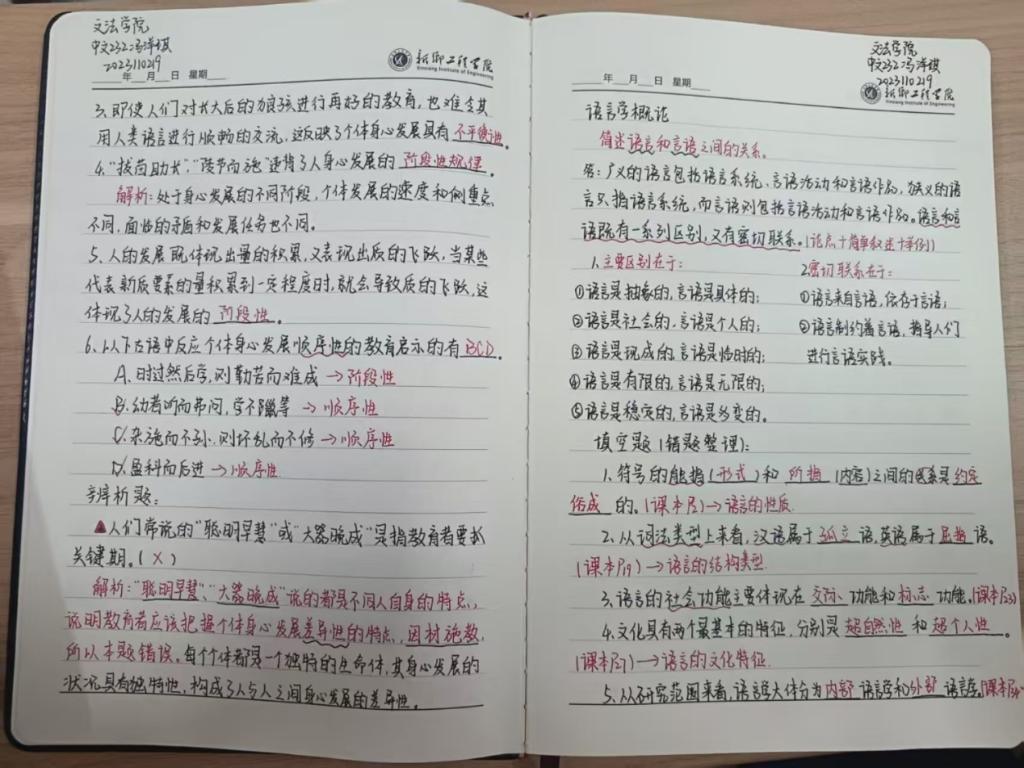 文法学院
中文232冯洋琪
2023110219
新乡工程学院
Xinxiang Institute of Engineering
年 月 日 星期
3.即使人们对长大后的狼孩进行再好的教育,也难令其
用人类语言进行顺畅的交流,这反映了个体身心发展具有 不平衡性。
4."拔苗助长""陵节而施"违背了人身心发展的 阶段性规律。
解析:处于身心发展的不同阶段,个体发展的速度和侧重点
不同,面临的矛盾和发展任务也不同。
5.人的发展既体现出量的积累,又表现出质的飞跃,当某些
代表新质要素的量积累到一定程度时,就会导致质的飞跃,这
体现了人的发展的 阶段性。
6.以下古语中反应个体身心发展顺序性的教育启示的有 BCD。
A.时过然后学,则勤苦而难成→阶段性
B.幼者听而弗问,学不躐等→顺序性
C.杂施而不孙,则坏乱而不修→顺序性
D.盈科而后进→顺序性
辨析题:
▲人们常说的"聪明早慧"或"大器晚成"是指教育者要抓
关键期。(×)
解析:"聪明早慧"、"大器晚成"说的都是不同人自身的特点,
说明教育者应该把握个体身心发展差异性的特点,因材施教,
所以本题错误。每个个体都是一个独特的生命体,其身心发展的
状况具有独特性,构成了人与人之间身心发展的差异性。
文法学院
中文232冯洋琪
2023110219
年 月 日 星期
新乡工程学院
Xinxiang Institute of Engineering
语言学概论
简述语言和言语之间的关系。
答:广义的语言包括语言系统、言语活动和言语作品,狭义的语
言只指语言系统,而言语则包括言语活动和言语作品。语言和言
语既有一系列区别,又有密切联系。(论点+简单叙述+举例)
1.主要区别在于: 2.密切联系在于:
①语言是抽象的,言语是具体的; ①语言来自言语,依存于言语;
②语言是社会的,言语是个人的; ②语言制约着言语,指导人们
③语言是现成的,言语是临时的; 进行言语实践。
④语言是有限的,言语是无限的;
⑤语言是稳定的,言语是多变的。
填空题(错题整理):
1.符号的能指(形式)和 所指 (内容)之间的关系是约定
俗成 的。(课本)→语言的性质
2.从词法类型上来看,汉语属于孤立语,英语属于屈折语。
(课本P19)→语言的结构类型
3.语言的社会功能主要体现在 交际 功能和标志 功能。(课本)
4.文化具有两个最基本的特征,分别是 超自然性 和 超个人性。
(课本)→语言的文化特征
5.从研究范围来看,语言学大体分为内部 语言学和外部 语言学。(课本)